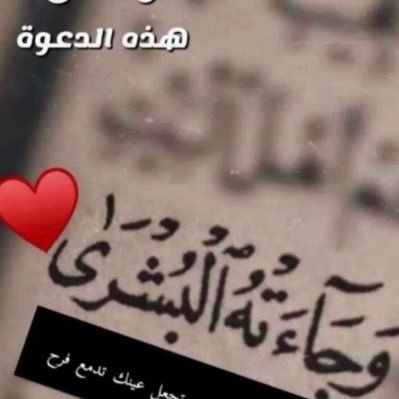 هذه الدعوة
وَجَآءَتْهُ الْبُشْرَىٰ
تجعل عينك تدمع فرح